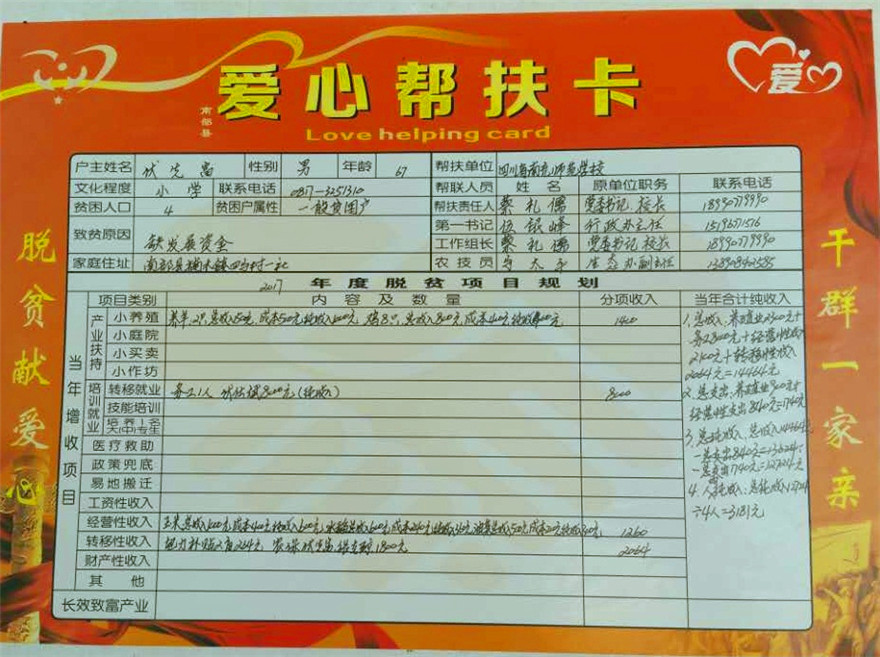 爱心帮扶卡
南部县
Love helping card
爱
脱贫献爱心
干群一家亲
户主姓名 伏先富 性别 男 年龄 67 帮扶单位 四川省南充师范学校
文化程度 小学 联系电话 0817-3251310 帮联人员 姓名 原单位职务 联系电话
贫困人口 4 贫困户属性 一般贫困户 帮扶责任人 蔡礼儒 党委书记 校长 18990779990
致贫原因 缺发展资金 第一书记 伍银峰 行政办主任 15196771576
工作组长 蔡礼儒 党委书记 校长 18990779990
家庭住址 南部县楠木镇四方村一社 农技员 李太平 主任
2017 年度脱贫项目规划
项目类别 内容及数量 分项收入 当年合计纯收入
当年增收项目
产业扶持
小养殖 1400
小庭院
小买卖
小作坊
培训就业
转移就业 务工1人 8000元(纯收入) 8000
技能培训
培养1名大(中)专生
医疗救助
政策兜底
易地搬迁
工资性收入
经营性收入 1260
转移性收入 2064
财产性收入
其他
长效致富产业
1、总收入:养殖业2300元+
务工8000元+经营性收入
2100元+转移性收入
2064元=14464元
2、总支出:养殖业900元+
经营性支出840元=1740元
3、总纯收入:总收入14464元
-总支出1740元=12724元
4、人均纯收入:总纯收入12724
÷4人=3181元